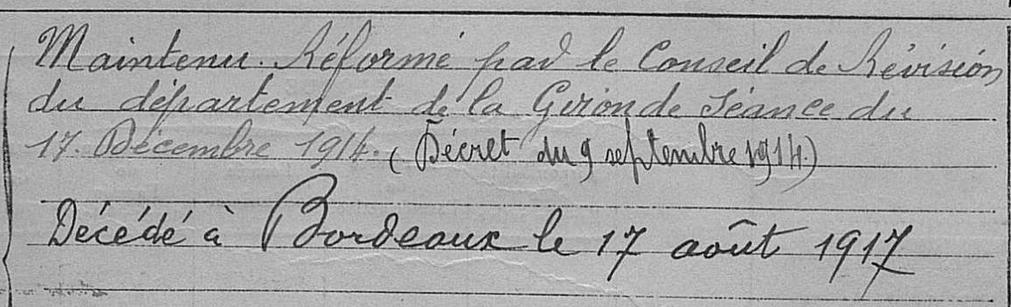 Maintenu. Réformé par le Conseil de Révision
du département de la Gironde Séance du
17. Décembre 1914. (Décret du 9 septembre 1914.)
Décédé à Bordeaux le 17 août 1917